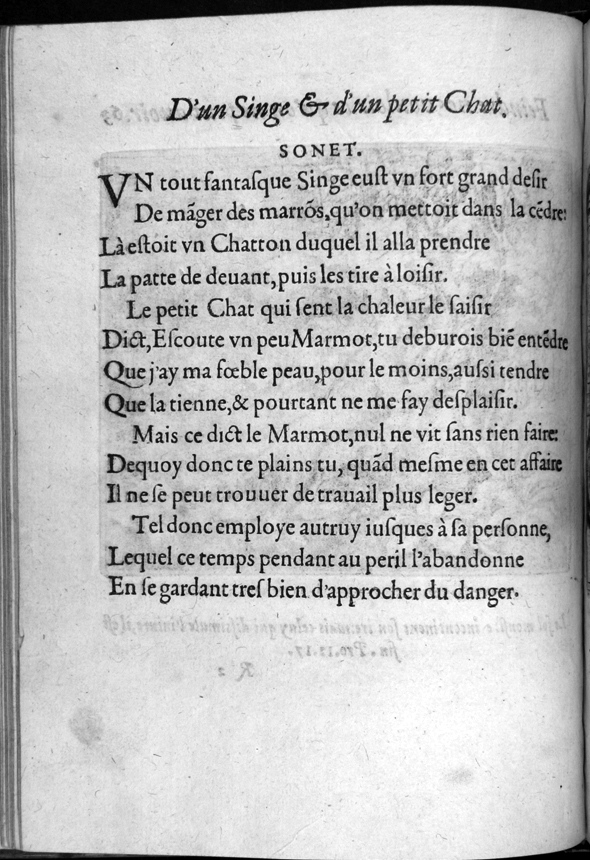 D'un Singe & d'un petit Chat.
SONET.
VN tout fantaſque Singe euſt vn fort grand deſir
De mãger des marrõs, qu'on mettoit dans la cẽdre:
Là eſtoit vn Chatton duquel il alla prendre
La patte de deuant, puis les tire à loiſir.
Le petit Chat qui ſent la chaleur le ſaiſir
Dict, Eſcoute vn peu Marmot, tu deburois biẽ entẽdre
Que j'ay ma fœble peau, pour le moins, auſsi tendre
Que la tienne, & pourtant ne me fay deſplaiſir.
Mais ce dict le Marmot, nul ne vit ſans rien faire:
Dequoy donc te plains tu, quãd meſme en cet affaire
Il ne ſe peut trouuer de trauail plus leger.
Tel donc employe autruy iuſques à ſa perſonne,
Lequel ce temps pendant au peril l'abandonne
En ſe gardant treſ bien d'approcher du danger.